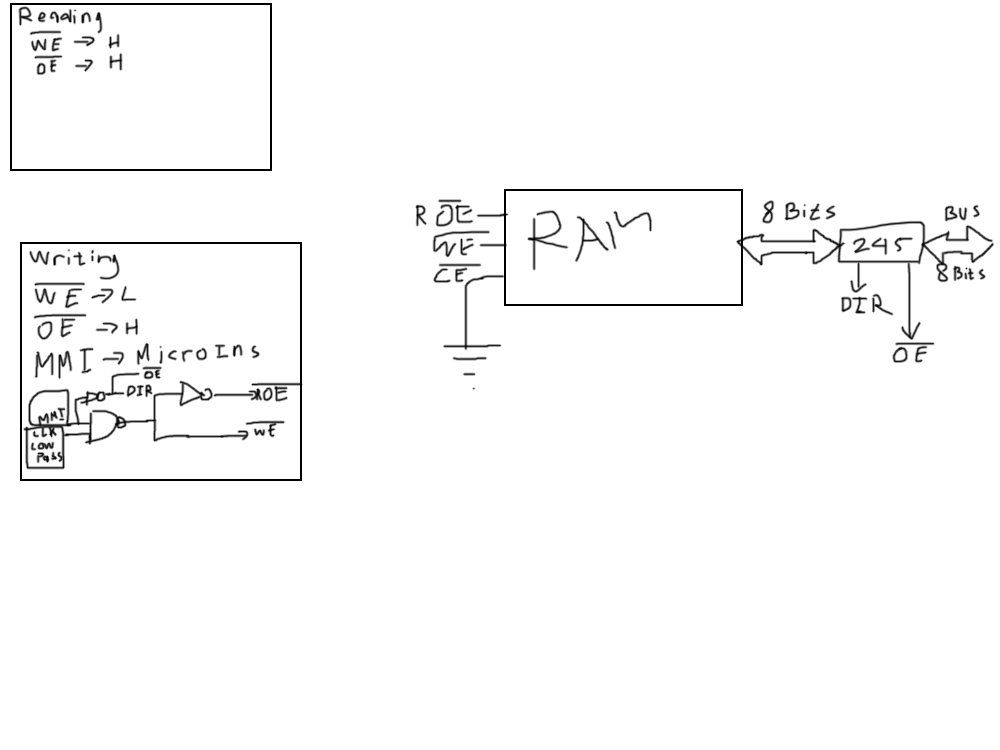 Reading
W̅E̅ → H
O̅E̅ → H
Writing
W̅E̅ → L
O̅E̅ → H
MMI → MicroIns
O̅E̅
DIR
R̅O̅E̅
MMI
W̅E̅
CLK
LOW
Pass
R O̅E̅
W̅E̅
C̅E̅
RAM
8 Bits
245
BUS
8 Bits
DIR
O̅E̅